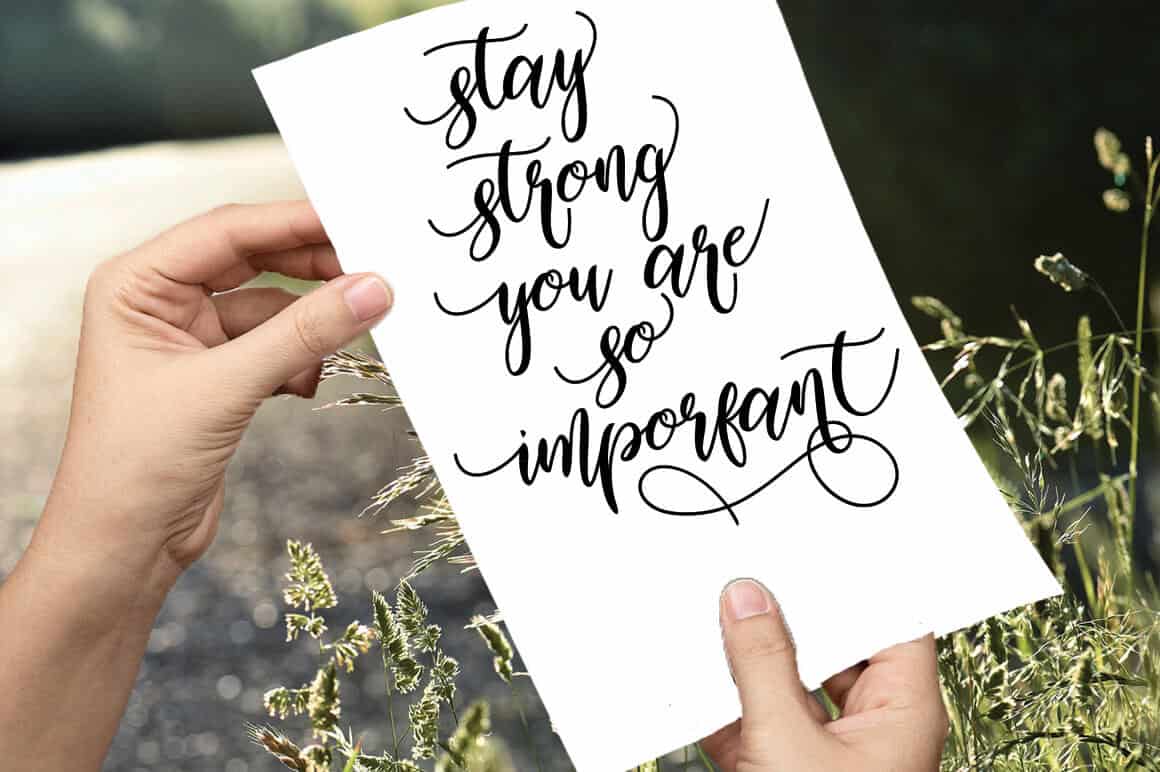 stay
strong
you are
so
important